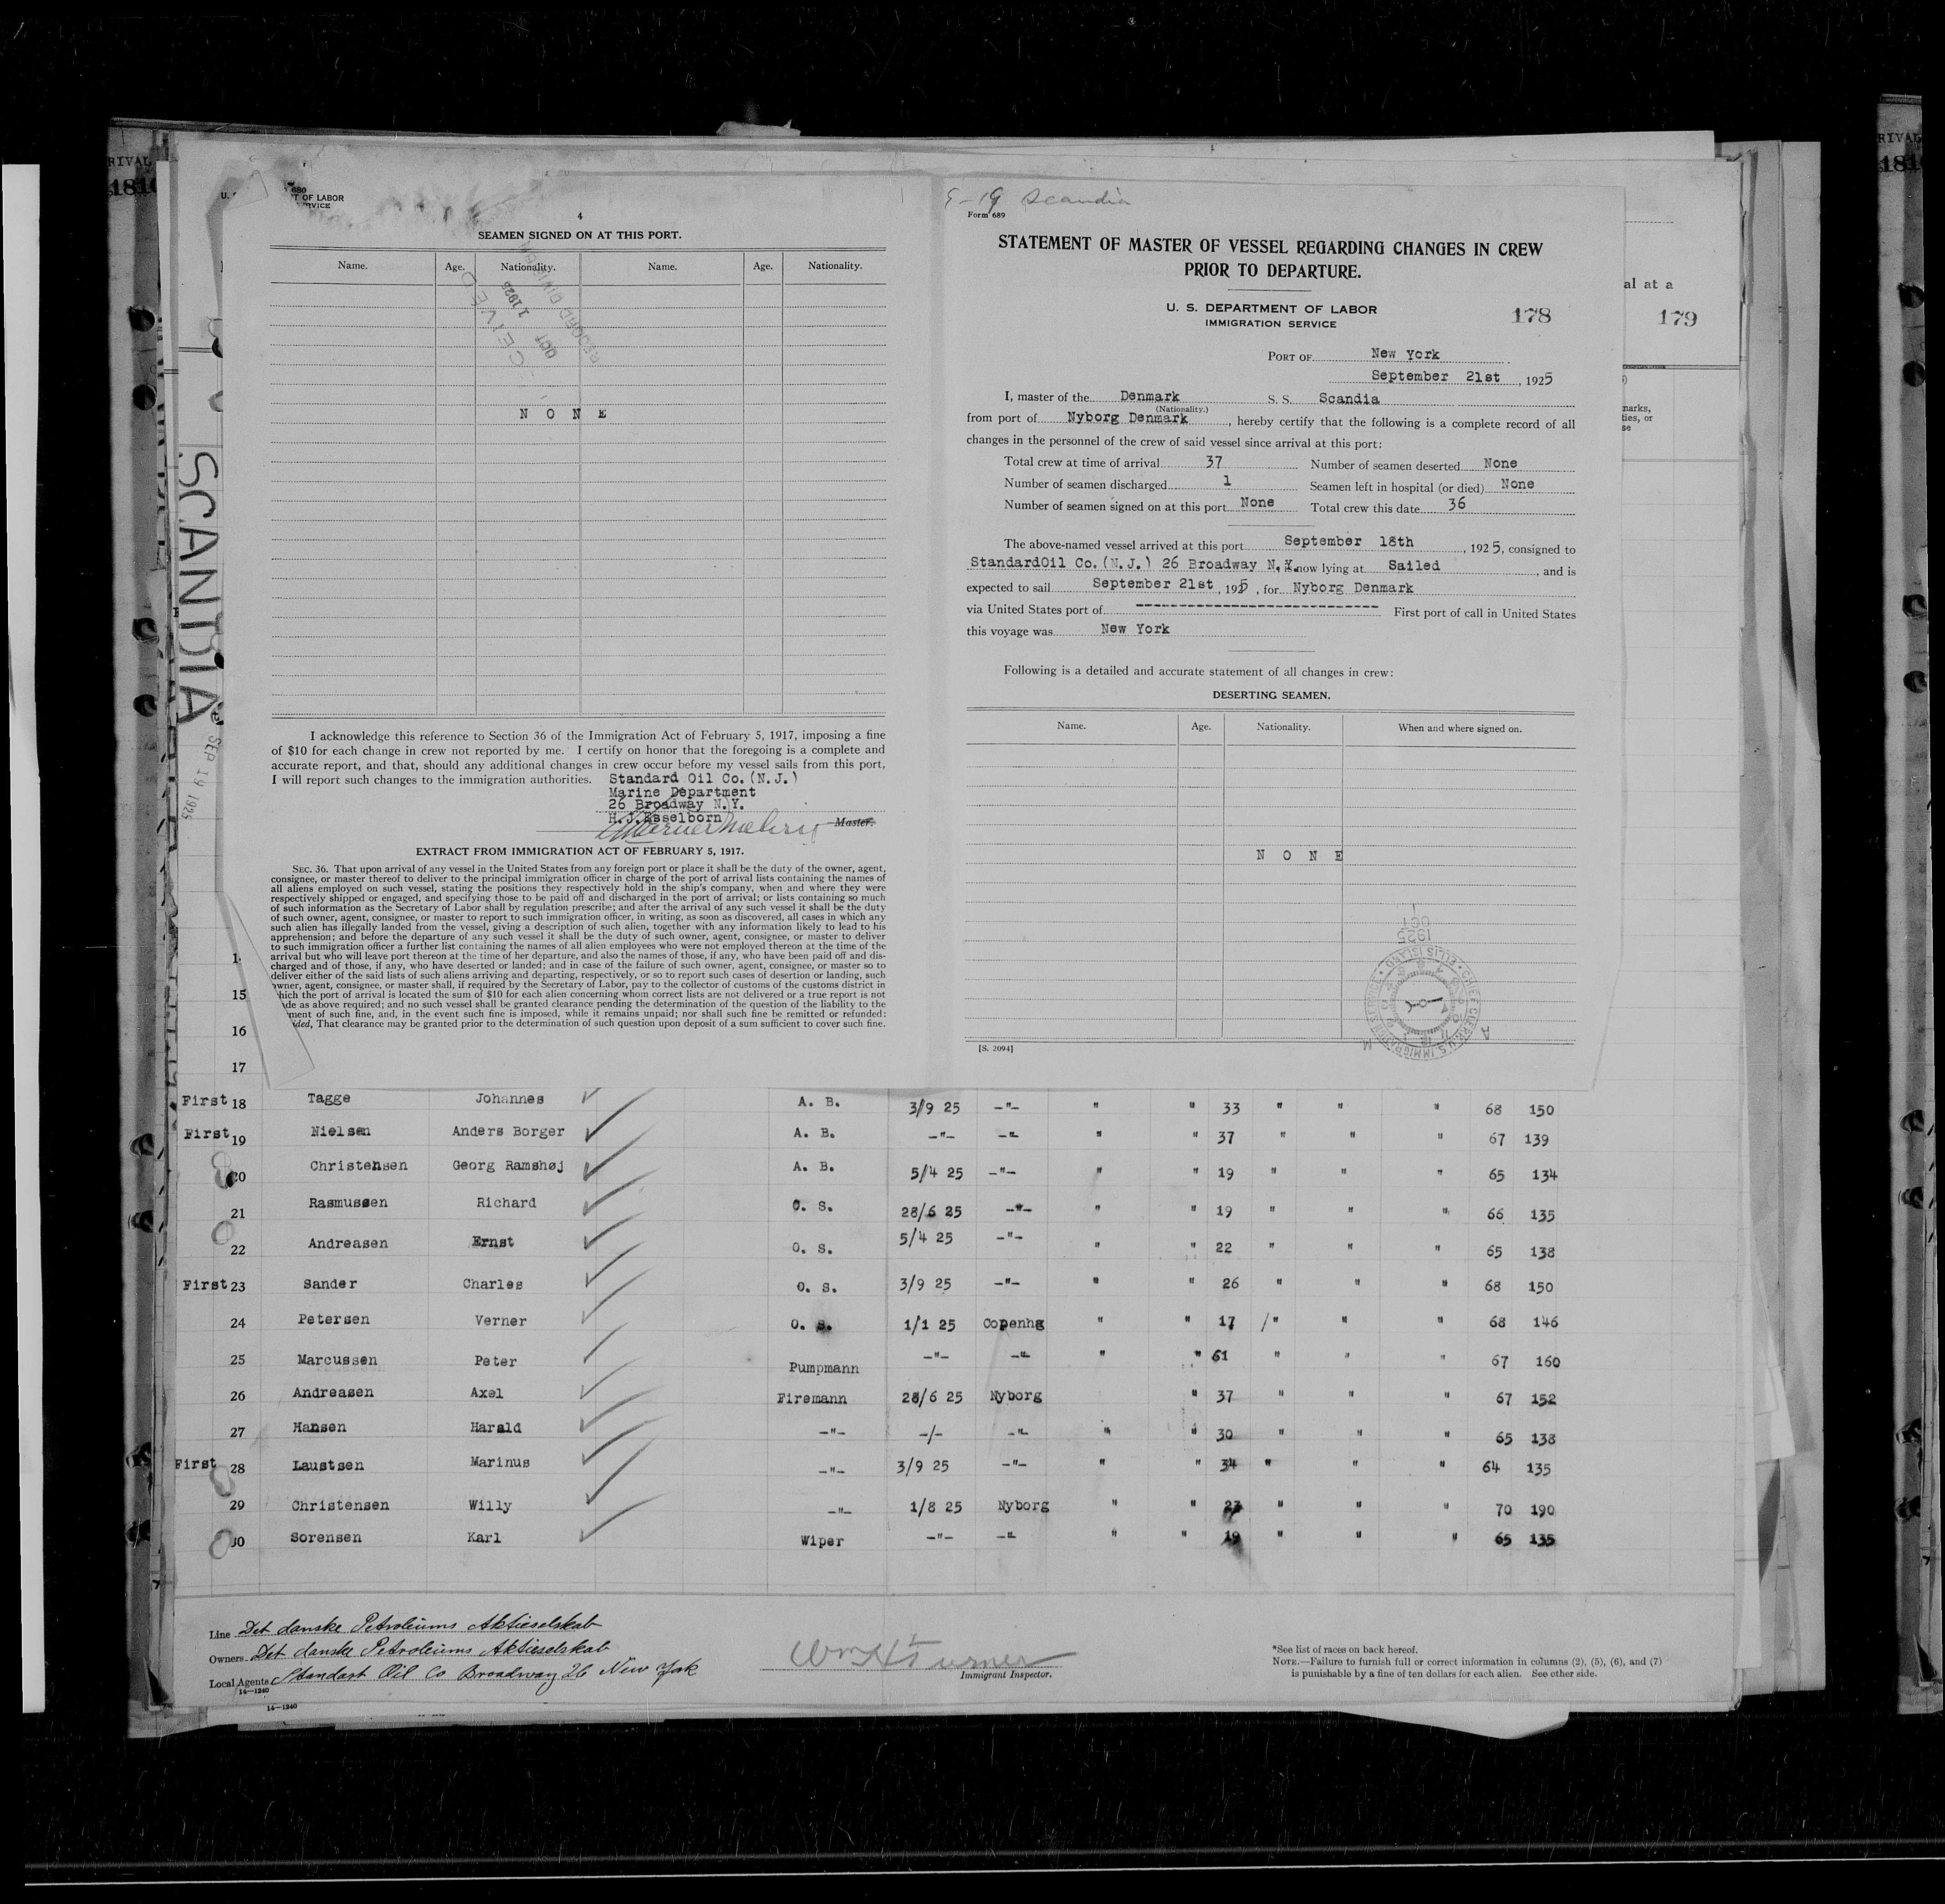 RIVAL
1816
U. S.
680
T OF LABOR
RVICE
4
SEAMEN SIGNED ON AT THIS PORT.
Name. Age. Nationality. Name. Age. Nationality.
CEIVED
OCT 1 1925
RECORD DIVISION
N O N E
I acknowledge this reference to Section 36 of the Immigration Act of February 5, 1917, imposing a fine
of $10 for each change in crew not reported by me. I certify on honor that the foregoing is a complete and
accurate report, and that, should any additional changes in crew occur before my vessel sails from this port,
I will report such changes to the immigration authorities. Standard Oil Co.(N.J.)
Marine Department
26 Broadway N.Y.
H.J.Esselborn
Master.
EXTRACT FROM IMMIGRATION ACT OF FEBRUARY 5, 1917.
SEC. 36. That upon arrival of any vessel in the United States from any foreign port or place it shall be the duty of the owner, agent,
consignee, or master thereof to deliver to the principal immigration officer in charge of the port of arrival lists containing the names of
all aliens employed on such vessel, stating the positions they respectively hold in the ship's company, when and where they were
respectively shipped or engaged, and specifying those to be paid off and discharged in the port of arrival; or lists containing so much
of such information as the Secretary of Labor shall by regulation prescribe; and after the arrival of any such vessel it shall be the duty
of such owner, agent, consignee, or master to report to such immigration officer, in writing, as soon as discovered, all cases in which any
such alien has illegally landed from the vessel, giving a description of such alien, together with any information likely to lead to his
apprehension; and before the departure of any such vessel it shall be the duty of such owner, agent, consignee, or master to deliver
to such immigration officer a further list containing the names of all alien employees who were not employed thereon at the time of the
arrival but who will leave port thereon at the time of her departure, and also the names of those, if any, who have been paid off and dis-
charged and of those, if any, who have deserted or landed; and in case of the failure of such owner, agent, consignee, or master so to
deliver either of the said lists of such aliens arriving and departing, respectively, or so to report such cases of desertion or landing, such
owner, agent, consignee, or master shall, if required by the Secretary of Labor, pay to the collector of customs of the customs district in
which the port of arrival is located the sum of $10 for each alien concerning whom correct lists are not delivered or a true report is not
de as above required; and no such vessel shall be granted clearance pending the determination of the question of the liability to the
ment of such fine, and, in the event such fine is imposed, while it remains unpaid; nor shall such fine be remitted or refunded:
ided, That clearance may be granted prior to the determination of such question upon deposit of a sum sufficient to cover such fine.
SCANDIA
SEP 19 1925
9-19 Scandia
Form 689
STATEMENT OF MASTER OF VESSEL REGARDING CHANGES IN CREW
PRIOR TO DEPARTURE.
U. S. DEPARTMENT OF LABOR
IMMIGRATION SERVICE
178
PORT OF New York
September 21st, 1925
I, master of the Denmark S. S. Scandia
(Nationality.)
from port of Nyborg Denmark, hereby certify that the following is a complete record of all
changes in the personnel of the crew of said vessel since arrival at this port:
Total crew at time of arrival 37 Number of seamen deserted None
Number of seamen discharged 1 Seamen left in hospital (or died) None
Number of seamen signed on at this port None Total crew this date 36
The above-named vessel arrived at this port September 18th, 1925, consigned to
StandardOil Co.(N.J.) 26 Broadway N.Y. now lying at Sailed, and is
expected to sail September 21st, 1925, for Nyborg Denmark
via United States port of ---------------------------- First port of call in United States
this voyage was New York
Following is a detailed and accurate statement of all changes in crew:
DESERTING SEAMEN.
Name. Age. Nationality. When and where signed on.
N O N E
1925
OCT
1
CHIEF CLERK, U.S. IMMIGRATION SERVICE • ELLIS ISLAND •
A
M
[S. 2094]
al at a
179
narks,
ties, or
se
15
16
17
First 18 Tagge Johannes A. B. 3/9 25 -"- " " 33 " " " 68 150
First 19 Nielsen Anders Borger A. B. -"- -"- " " 37 " " " 67 139
20 Christensen Georg Ramshøj A. B. 5/4 25 -"- " " 19 " " " 65 134
21 Rasmussen Richard O. S. 28/6 25 -"- " " 19 " " " 66 135
22 Andreasen Ernst O. S. 5/4 25 -"- " " 22 " " " 65 138
First 23 Sander Charles O. S. 3/9 25 -"- " " 26 " " " 68 150
24 Petersen Verner O. S. 1/1 25 Copenhg " " 17 /" " " 68 146
25 Marcussen Peter Pumpmann -"- -"- " " 61 " " " 67 160
26 Andreasen Axel Firemann 28/6 25 Nyborg " 37 " " " 67 152
27 Hansen Harald -"- -/- -"- " " 30 " " " 65 138
First 28 Laustsen Marinus -"- 3/9 25 -"- " " 34 " " " 64 135
29 Christensen Willy -"- 1/8 25 Nyborg " " 23 " " " 70 190
30 Sorensen Karl Wiper -"- -"- " " 19 " " " 65 135
Line Det danske Petroleums Aktieselskab
Owners Det danske Petroleums Aktieselskab
Local Agents Standart Oil Co Broadway 26 New York
14—1240
14—1240
Wm H Turner
Immigrant Inspector.
*See list of races on back hereof.
NOTE.—Failure to furnish full or correct information in columns (2), (5), (6), and (7)
is punishable by a fine of ten dollars for each alien. See other side.
RIVAL
1816